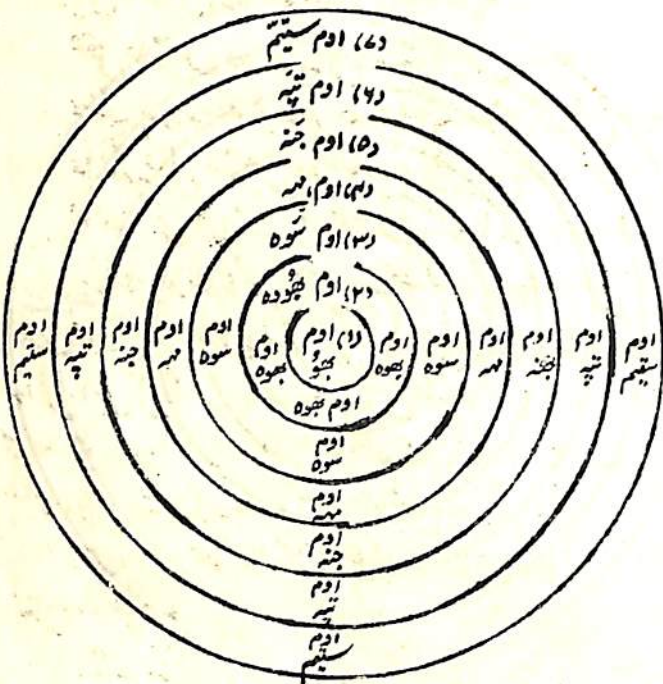 (۷) اوم ستیّم
(۶) اوم تپَہ
(۵) اوم جَنہ
(۴) اوم مہہ
(۳) اوم سَوہ
(۲) اوم بھُوہ
اوم
ستیم
اوم
تپہ
اوم
جنہ
اوم
مہہ
اوم
سوہ
اوم
بھوہ
(۱) اوم
بھُو
اوم
بھوہ
اوم
سوہ
اوم
مہہ
اوم
جنہ
اوم
تپہ
اوم
ستیم
اوم بھوہ
اوم
سوہ
اوم
مہہ
اوم
جنہ
اوم
تپہ
اوم
ستیم